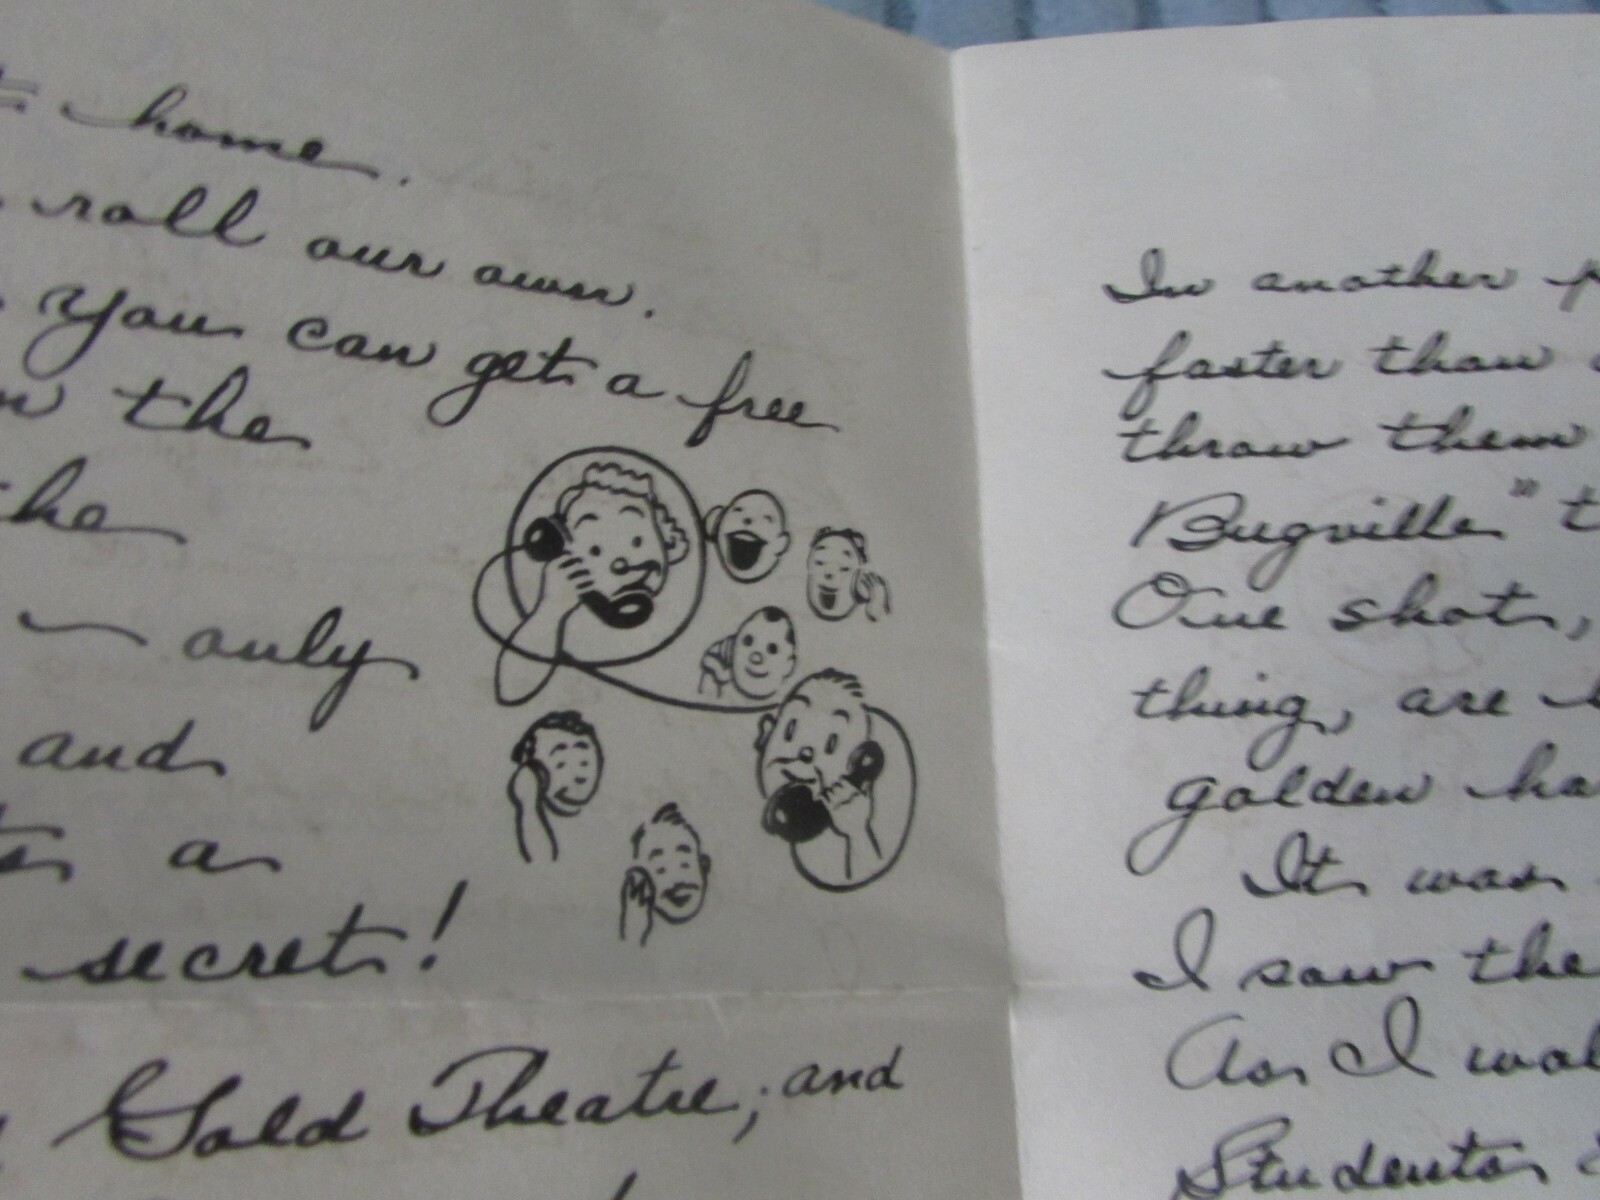 home.
roll our own.
You can get a free
the
the
only
and
a
secret!
Gold Theatre, and
In another
faster than
throw them
Bugville" t
One shot,
thing, are
golden ha
It was
I saw the
As I wal
Students